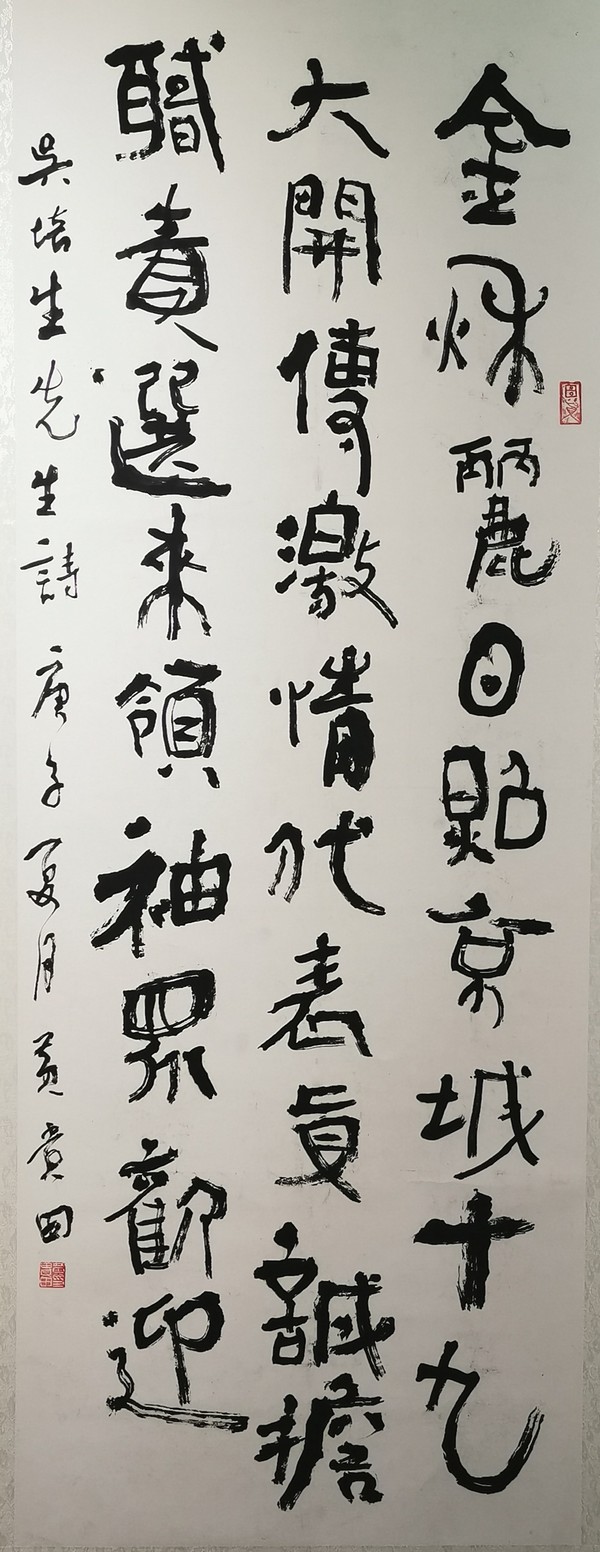 金秌麗日點京城十九
大開傳激情代表真誠擔
職責選來領袖眾歡迎
吳培生先生詩庚子夏月黃田